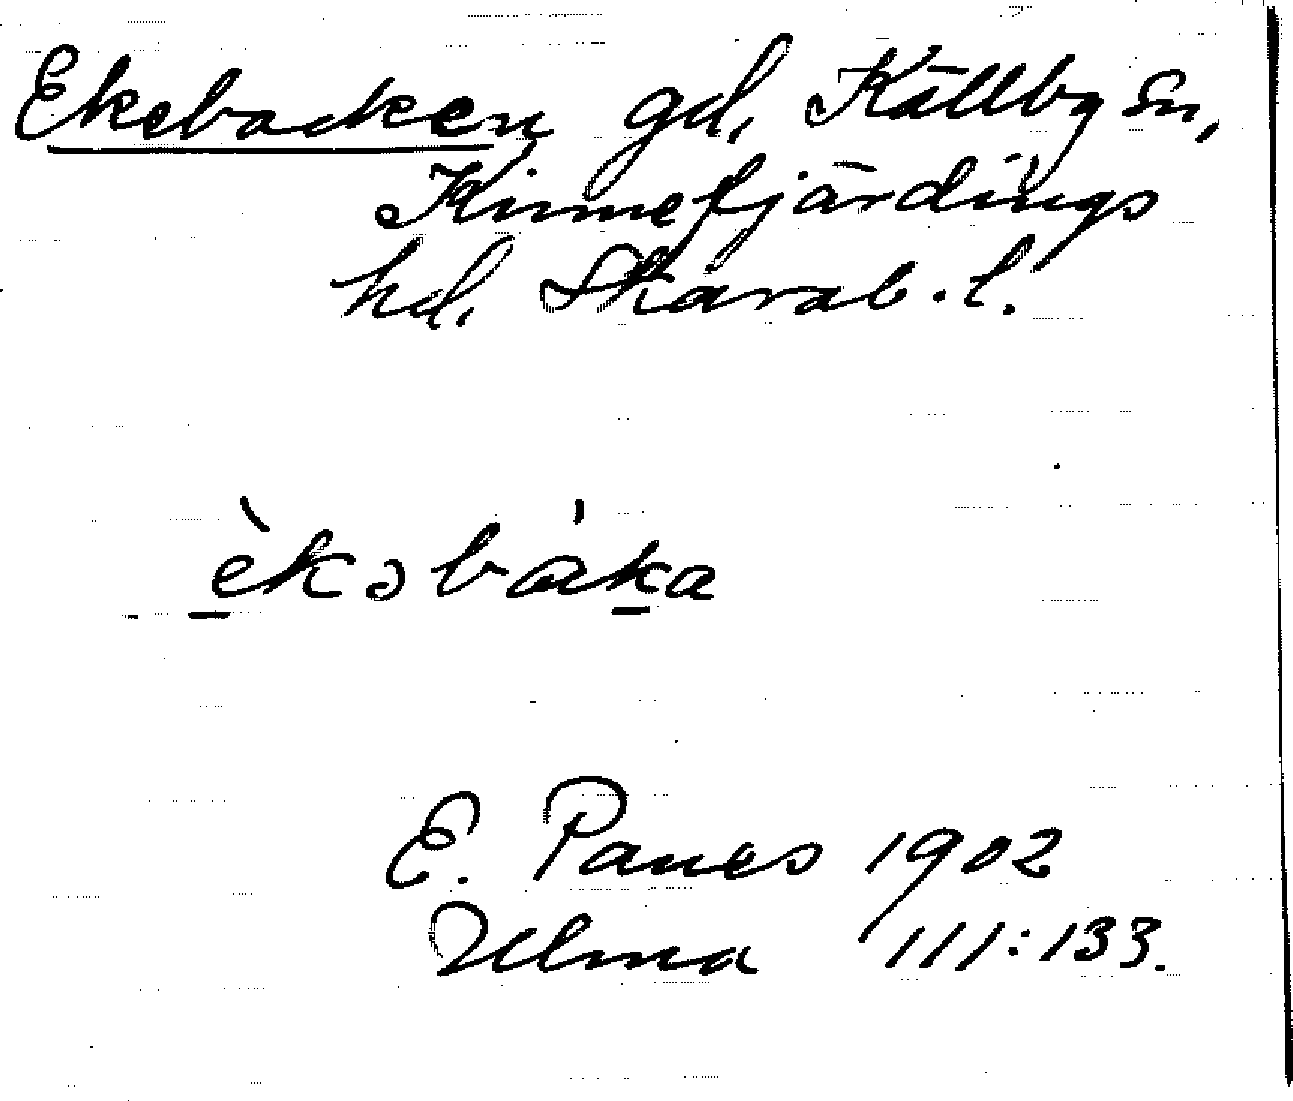 Ekebacken gd, Källby sn,
Kinnefjärdings
hd, Skarab. l.
èkəbáka
E. Panes 1902
Ulma 111:133.